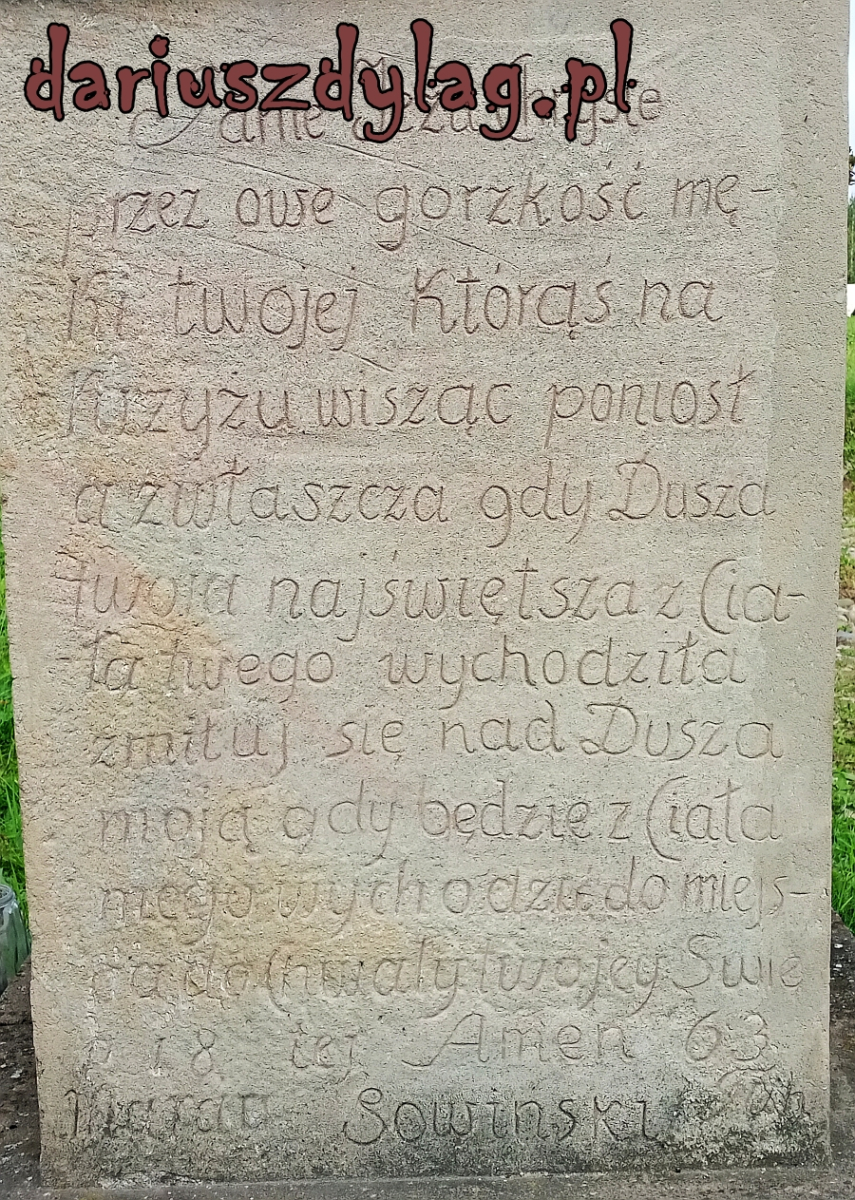 dariuszdylag.pl
Panie Jezu Chryste
przez owe gorzkość mę-
ki twojej Którąś na
Krzyżu wisząc poniosł
a zwłaszcza gdy Dusza
twoja najświętsza z Cia-
ła twego wychodziła
zmiłuj się nad Dusza
moją gdy będzie z Ciała
mego wychodzić do miejs-
ca do Chwały twojey Swie
18 tej Amen 63
Sowinski